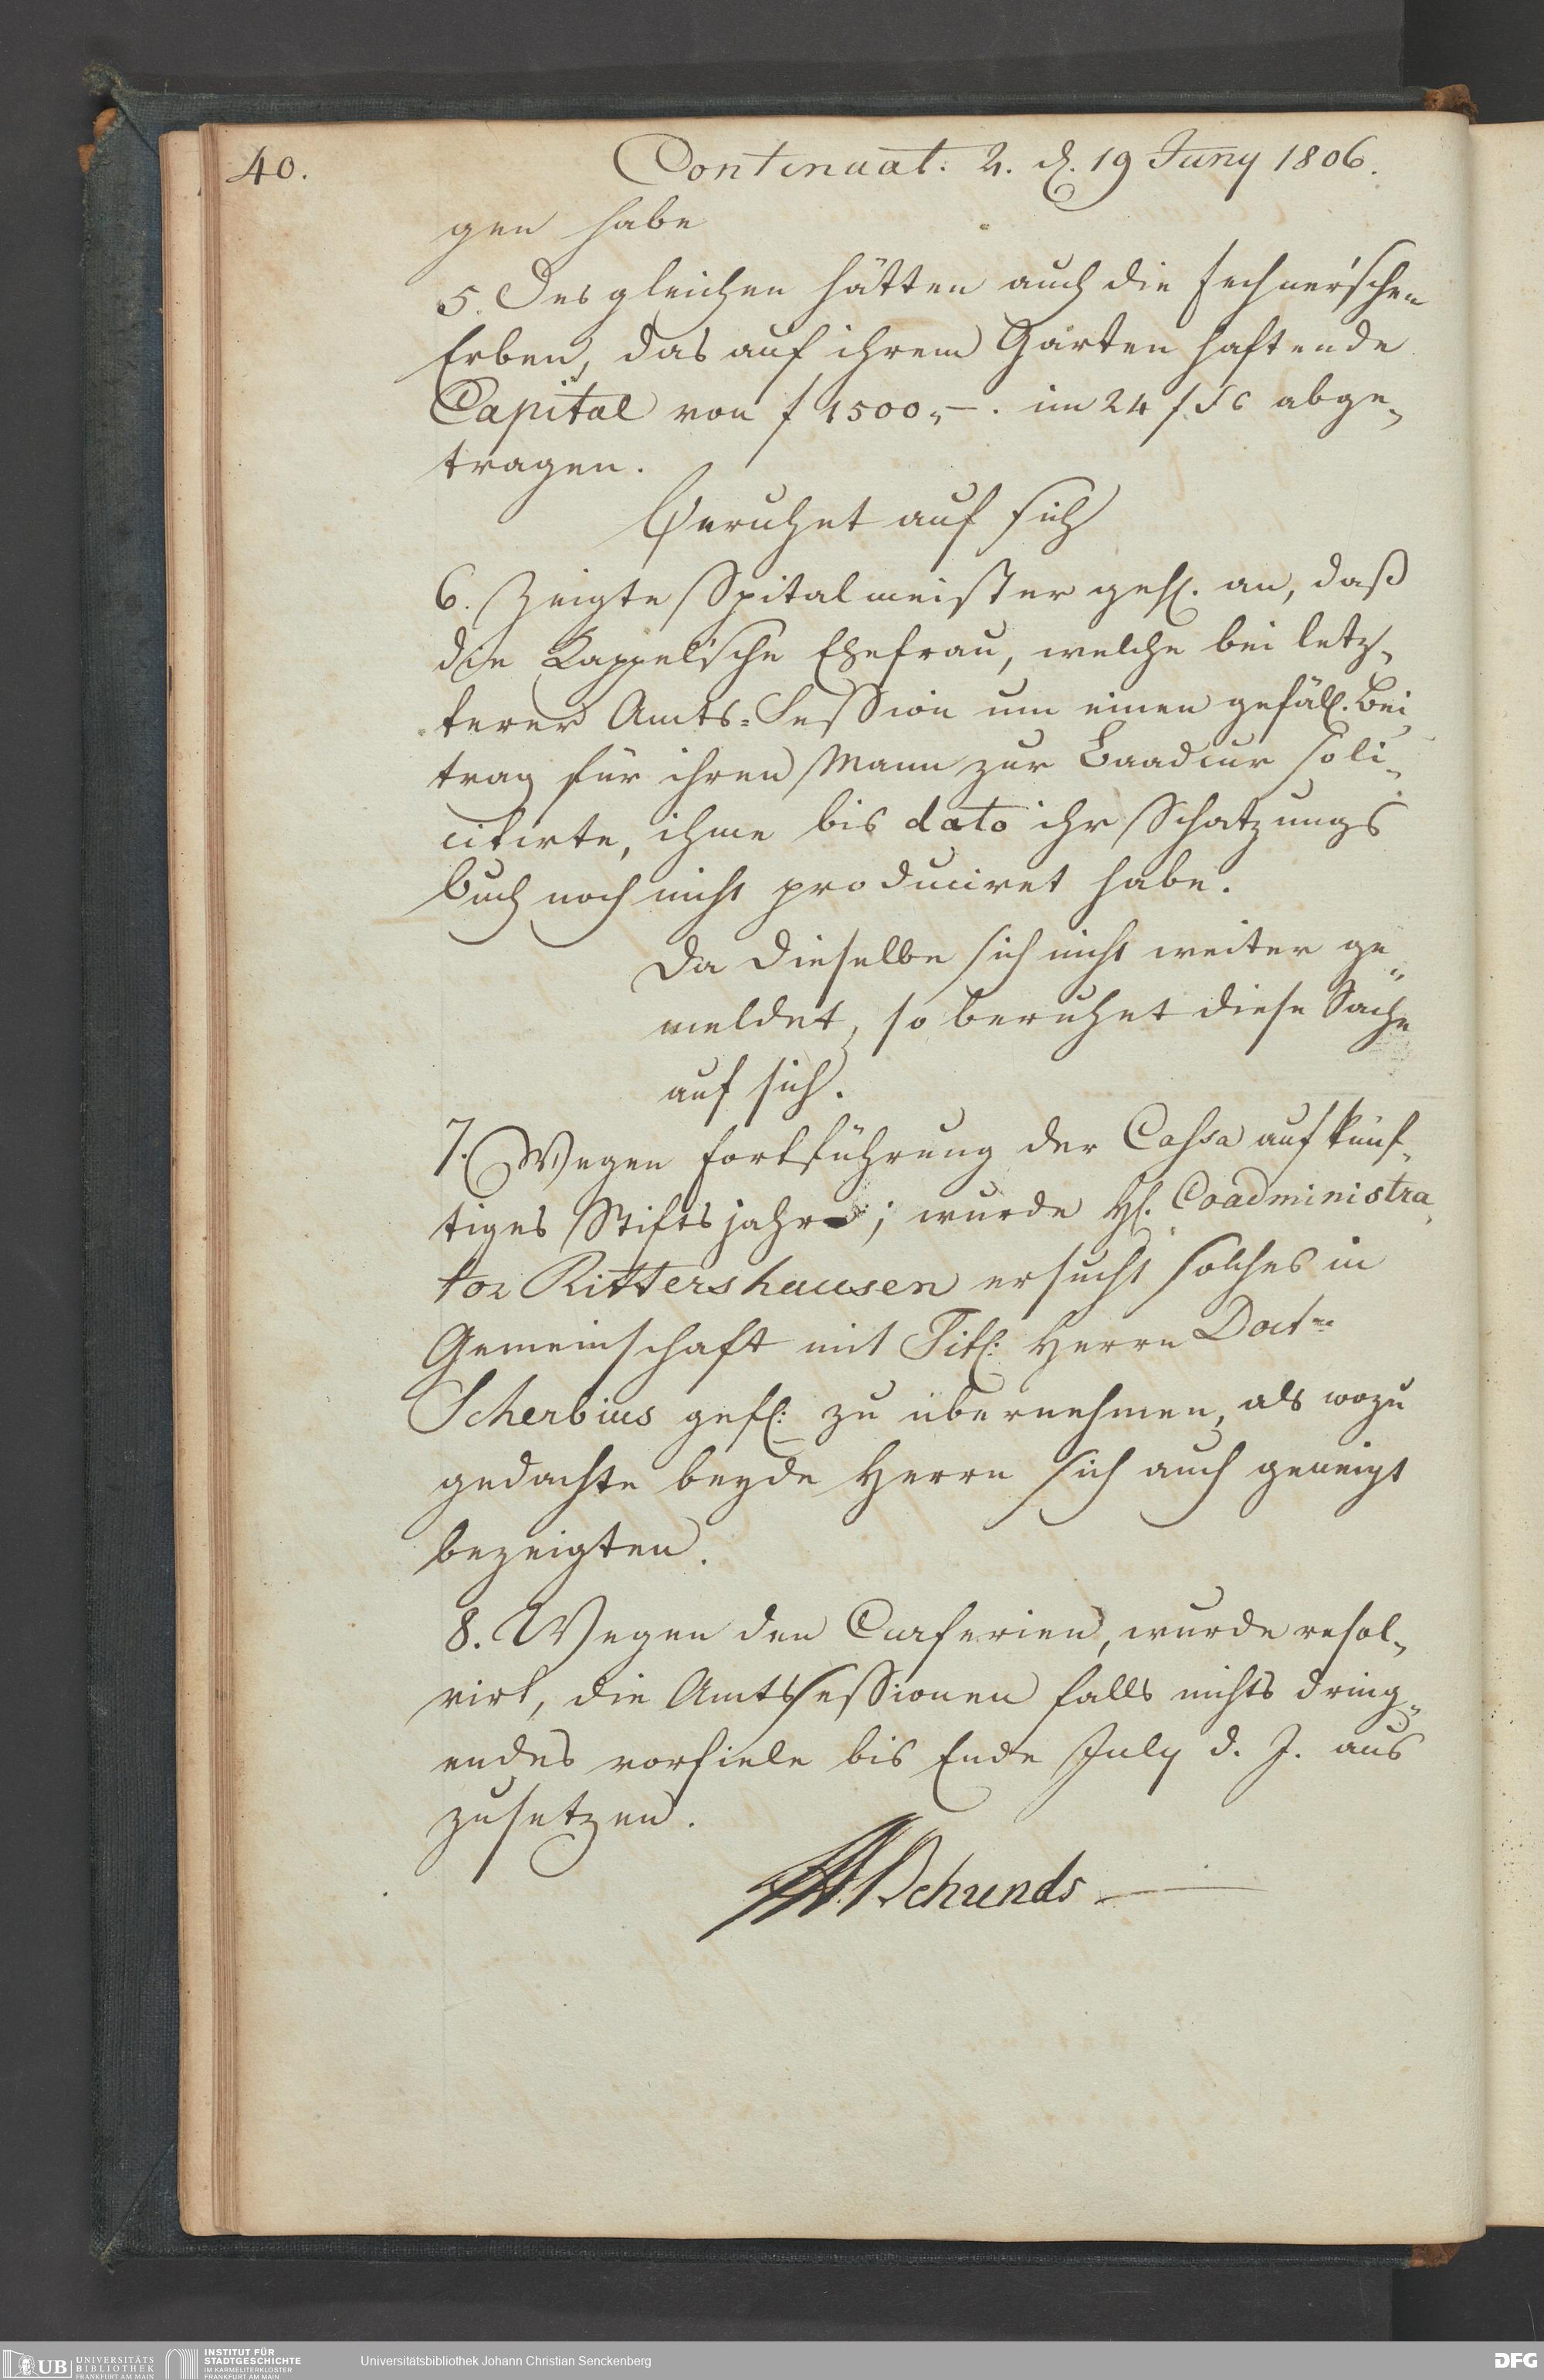 40.
Continuat: 2. d. 19 Juny 1806.
gen habe
5. Desgleichen hätten auch die Fechner'schen
Erben, das auf ihrem Garten haftende
Capital von f 1500,,—. im 24 f Fs abge„
tragen.
Beruhet auf sich
6. Zeigte Spitalmeister geh. an, daß
die Kappel'sche Ehefrau, welche bei letz„
terer Amts-Session um einen gefäll. Bei„
trag für ihren Mann zur Baadcur soli„
citirte, ihme bis dato ihr Schatzungs
buch noch nicht produciret habe.
Da dieselbe sich nicht weiter ge„
meldet, so beruhet diese Sache
auf sich.
7. Wegen Fortführung der Cassa auf künf„
tiges Stiftsjahr; wurde H. Coadministra„
tor Rittershausen ersucht solches in
Gemeinschaft mit Titl: Herrn Doctor
Scherbius gefl: zu übernehmen, als wozu
gedachte beyde Herrn sich auch geneigt
bezeigten.
8. Wegen den Curferien, wurde resol„
virt, die Amtssessionen falls nichts dring„
endes vorfiele bis Ende July d. J. aus
zusetzen.
Schunds
UB UNIVERSITÄTS
BIBLIOTHEK
FRANKFURT AM MAIN
INSTITUT FÜR
STADTGESCHICHTE
IM KARMELITERKLOSTER
FRANKFURT AM MAIN
Universitätsbibliothek Johann Christian Senckenberg
DFG